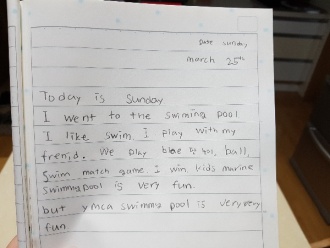 Date Sunday
march 25th
Today is Sunday
I went to the swiming pool
I like swim. I play with my
frenid. We play ball,
Swim match game. I win kids marine
swimming pool is very fun.
but ymca swimming pool is very very
fun